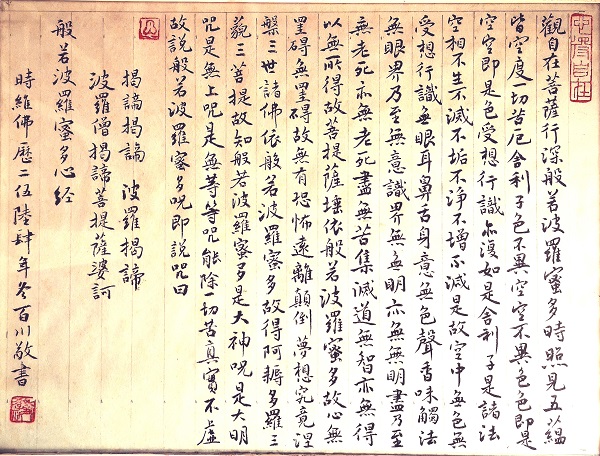 觀自在菩薩行深般若波羅蜜多時照見五蘊
皆空度一切苦厄舍利子色不異空空不異色色即是
空空即是色受想行識亦復如是舍利子是諸法
空相不生不滅不垢不净不增不減是故空中無色無
受想行識無眼耳鼻舌身意無色聲香味觸法
無眼界乃至無意識界無無明亦無無明盡乃至
無老死亦無老死盡無苦集滅道無智亦無得
以無所得故菩提薩埵依般若波羅蜜多故心無
罣礙無罣礙故無有恐怖遠離顛倒夢想究竟涅
槃三世諸佛依般若波羅蜜多故得阿耨多羅三
藐三菩提故知般若波羅蜜多是大神咒是大明
咒是無上咒是無等等咒能除一切苦真實不虛
故說般若波羅蜜多咒即說咒曰
揭諦揭諦 波羅揭諦
波羅僧揭諦菩提薩婆訶
般若波羅蜜多心经
時維佛歷二伍陸肆年冬百川敬書